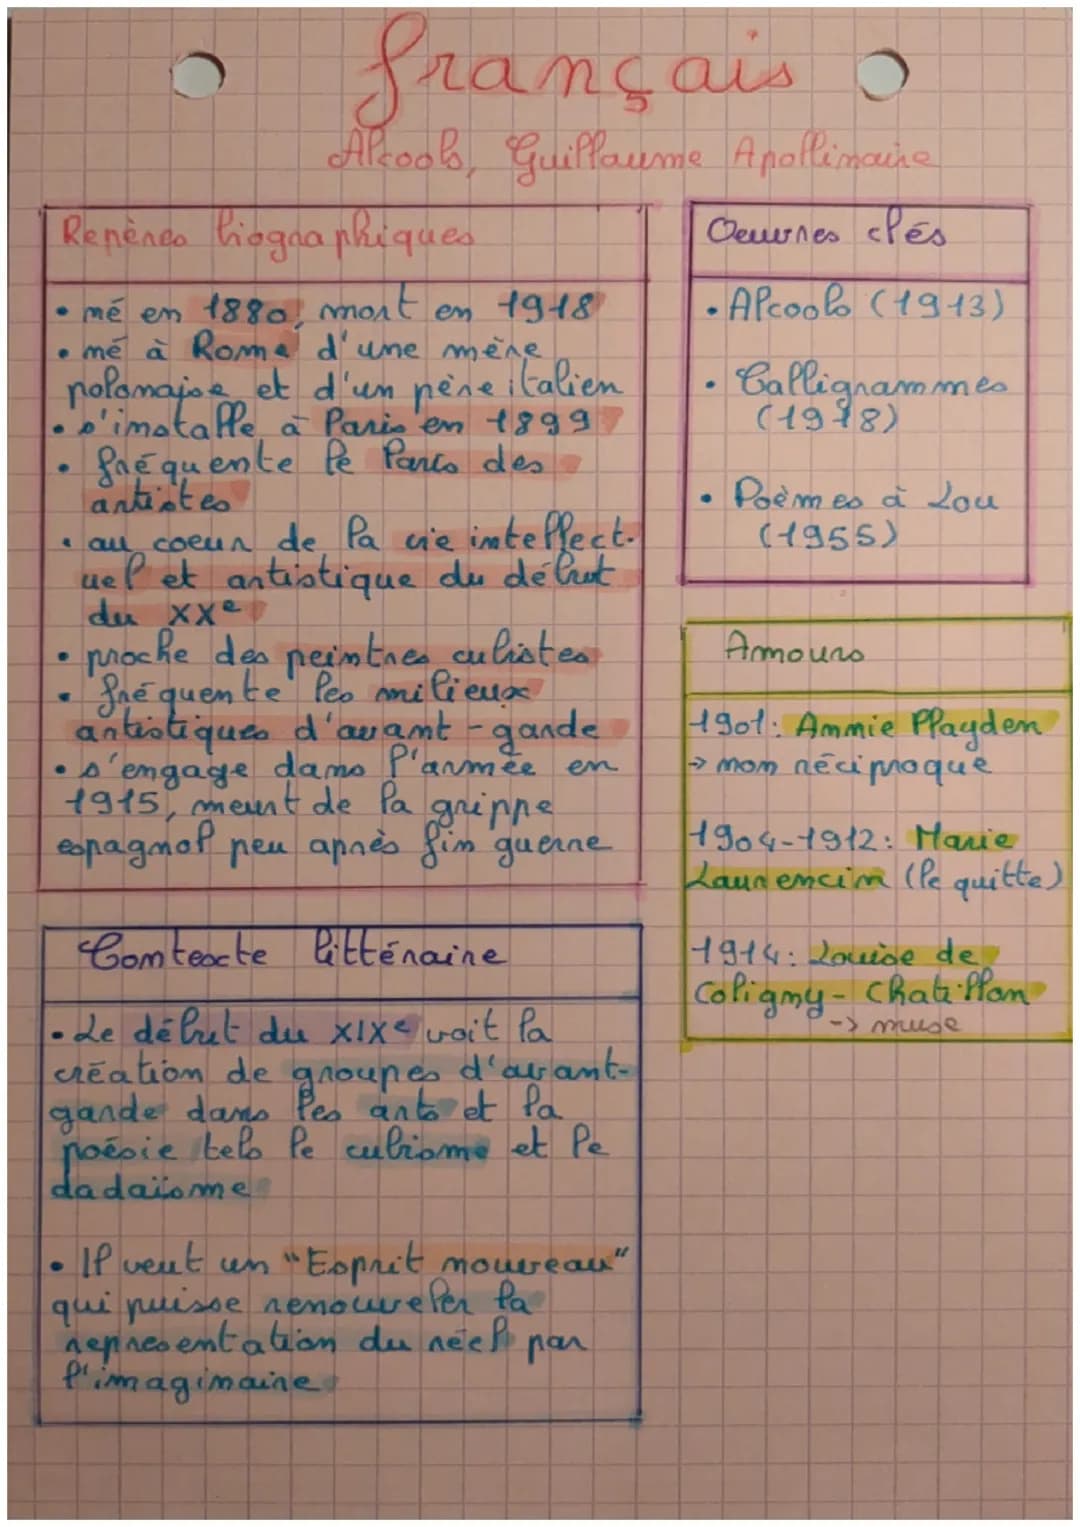 français
Alcools, Guillaume Apollinaire
Repères biographiques
• né en 1880, mort en 1918
• né à Rome d'une mère
polonaise et d'un père italien
• s'installe à Paris en 1899
• fréquente le Paris des
artistes
• au coeur de la vie intellect-
uel et artistique du début
du XXe
• proche des peintres cubistes
• fréquente les milieux
artistiques d'avant-garde
• s'engage dans l'armée en
1915, meurt de la grippe
espagnol peu après fin guerre
Oeuvres clés
• Alcools (1913)
• Calligrammes
(1918)
• Poèmes à Lou
(1955)
Amours
1901: Annie Playden
→ non réciproque
1904-1912: Marie
Laurencin (le quitte)
1914: Louise de
Coligny-Chatillon
-> muse
Contexte littéraire
• Le début du XIXe voit la
création de groupes d'avant-
garde dans les arts et la
poésie tels le cubisme et le
dadaïsme
• Il veut un "Esprit nouveau"
qui puisse renouveler la
representation du réel par
l'imaginaire